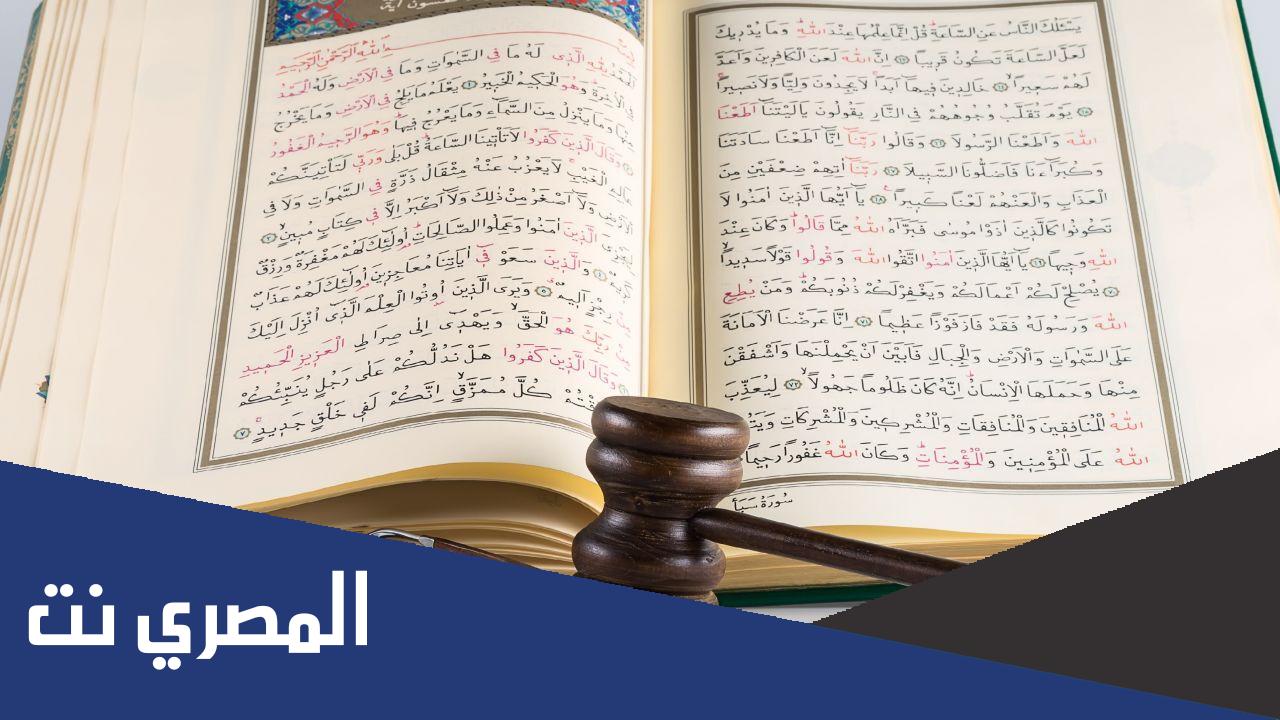 يَسْـَٔلُكَ النَّاسُ عَنِ السَّاعَةِ قُلْ اِنَّمَا عِلْمُهَا عِنْدَ اللّٰهِ وَمَا يُدْر۪يكَ
لَعَلَّ السَّاعَةَ تَكُونُ قَر۪يبًا ٦٣ اِنَّ اللّٰهَ لَعَنَ الْكَافِر۪ينَ وَاَعَدَّ
لَهُمْ سَع۪يرًا ٦٤ خَالِد۪ينَ ف۪يهَٓا اَبَدًا لَا يَجِدُونَ وَلِيًّا وَلَا نَص۪يرًا
٦٥ يَوْمَ تُقَلَّبُ وُجُوهُهُمْ فِي النَّارِ يَقُولُونَ يَا لَيْتَنَٓا اَطَعْنَا
اللّٰهَ وَاَطَعْنَا الرَّسُولَا ٦٦ وَقَالُوا رَبَّنَٓا اِنَّٓا اَطَعْنَا سَادَتَنَا
وَكُبَرَٓاءَنَا فَاَضَلُّونَا السَّب۪يلَا ٦٧ رَبَّنَٓا اٰتِهِمْ ضِعْفَيْنِ مِنَ
الْعَذَابِ وَالْعَنْهُمْ لَعْنًا كَب۪يرًا ٦٨ يَٓا اَيُّهَا الَّذ۪ينَ اٰمَنُوا لَا
تَكُونُوا كَالَّذ۪ينَ اٰذَوْا مُوسٰى فَبَرَّاَهُ اللّٰهُ مِمَّا قَالُوا وَكَانَ عِنْدَ
اللّٰهِ وَج۪يهًا ٦٩ يَٓا اَيُّهَا الَّذ۪ينَ اٰمَنُوا اتَّقُوا اللّٰهَ وَقُولُوا قَوْلًا سَد۪يدًا
٧٠ يُصْلِحْ لَكُمْ اَعْمَالَكُمْ وَيَغْفِرْ لَكُمْ ذُنُوبَكُمْ وَمَنْ يُطِعِ
اللّٰهَ وَرَسُولَهُ فَقَدْ فَازَ فَوْزًا عَظ۪يمًا ٧١ اِنَّا عَرَضْنَا الْاَمَانَةَ
عَلَى السَّمٰوَاتِ وَالْاَرْضِ وَالْجِبَالِ فَاَبَيْنَ اَنْ يَحْمِلْنَهَا وَاَشْفَقْنَ
مِنْهَا وَحَمَلَهَا الْاِنْسَانُ اِنَّهُ كَانَ ظَلُومًا جَهُولًا ٧٢ لِيُعَذِّبَ
اللّٰهُ الْمُنَافِق۪ينَ وَالْمُنَافِقَاتِ وَالْمُشْرِك۪ينَ وَالْمُشْرِكَاتِ وَيَتُ
اللّٰهُ عَلَى الْمُؤْمِن۪ينَ وَالْمُؤْمِنَاتِ وَكَانَ اللّٰهُ غَفُورًا رَح۪يمًا
سُورَةُ سَبَأ
الرَّحْمٰنِ الرَّح۪يمِ
اَلْحَمْدُ لِلّٰهِ الَّذ۪ي لَهُ مَا فِي السَّمٰوَاتِ وَمَا فِي الْاَرْضِ وَلَهُ الْحَمْدُ
فِي الْاٰخِرَةِ وَهُوَ الْحَك۪يمُ الْخَب۪يرُ ١ يَعْلَمُ مَا يَلِجُ فِي الْاَرْضِ وَمَا يَخْرُجُ
مِنْهَا وَمَا يَنْزِلُ مِنَ السَّمَٓاءِ وَمَا يَعْرُجُ ف۪يهَا وَهُوَ الرَّح۪يمُ الْغَفُورُ
٢ وَقَالَ الَّذ۪ينَ كَفَرُوا لَا تَأْت۪ينَا السَّاعَةُ قُلْ بَلٰى وَرَبّ۪ي لَتَأْتِيَنَّكُمْ
عَالِمِ الْغَيْبِ لَا يَعْزُبُ عَنْهُ مِثْقَالُ ذَرَّةٍ فِي السَّمٰوَاتِ وَلَا فِي
الْاَرْضِ وَلَٓا اَصْغَرُ مِنْ ذٰلِكَ وَلَٓا اَكْبَرُ اِلَّا ف۪ي كِتَابٍ مُب۪ينٍ ٣
لِيَجْزِيَ الَّذ۪ينَ اٰمَنُوا وَعَمِلُوا الصَّالِحَاتِ اُو۬لٰٓئِكَ لَهُمْ مَغْفِرَةٌ وَرِزْقٌ
كَر۪يمٌ ٤ وَالَّذ۪ينَ سَعَوْ ف۪ٓي اٰيَاتِنَا مُعَاجِز۪ينَ اُو۬لٰٓئِكَ لَهُمْ عَذَابٌ
مِنْ رِجْزٍ اَل۪يمٌ ٥ وَيَرَى الَّذ۪ينَ اُو۫تُوا الْعِلْمَ الَّذ۪ٓي اُنْزِلَ اِلَيْكَ
مِنْ رَبِّكَ هُوَ الْحَقَّ وَيَهْد۪ٓي اِلٰى صِرَاطِ الْعَز۪يزِ الْحَم۪يدِ
٦ وَقَالَ الَّذ۪ينَ كَفَرُوا هَلْ نَدُلُّكُمْ عَلٰى رَجُلٍ يُنَبِّئُكُمْ
كُلَّ مُمَزَّقٍ اِنَّكُمْ لَف۪ي خَلْقٍ جَد۪يدٍ ٧
المصري نت